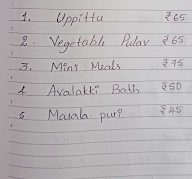 1. Uppittu ₹65
2. Vegetable Pulav ₹65
3. Mini Meals ₹75
4 Avalakki Bath ₹50
5 Masala puri ₹45